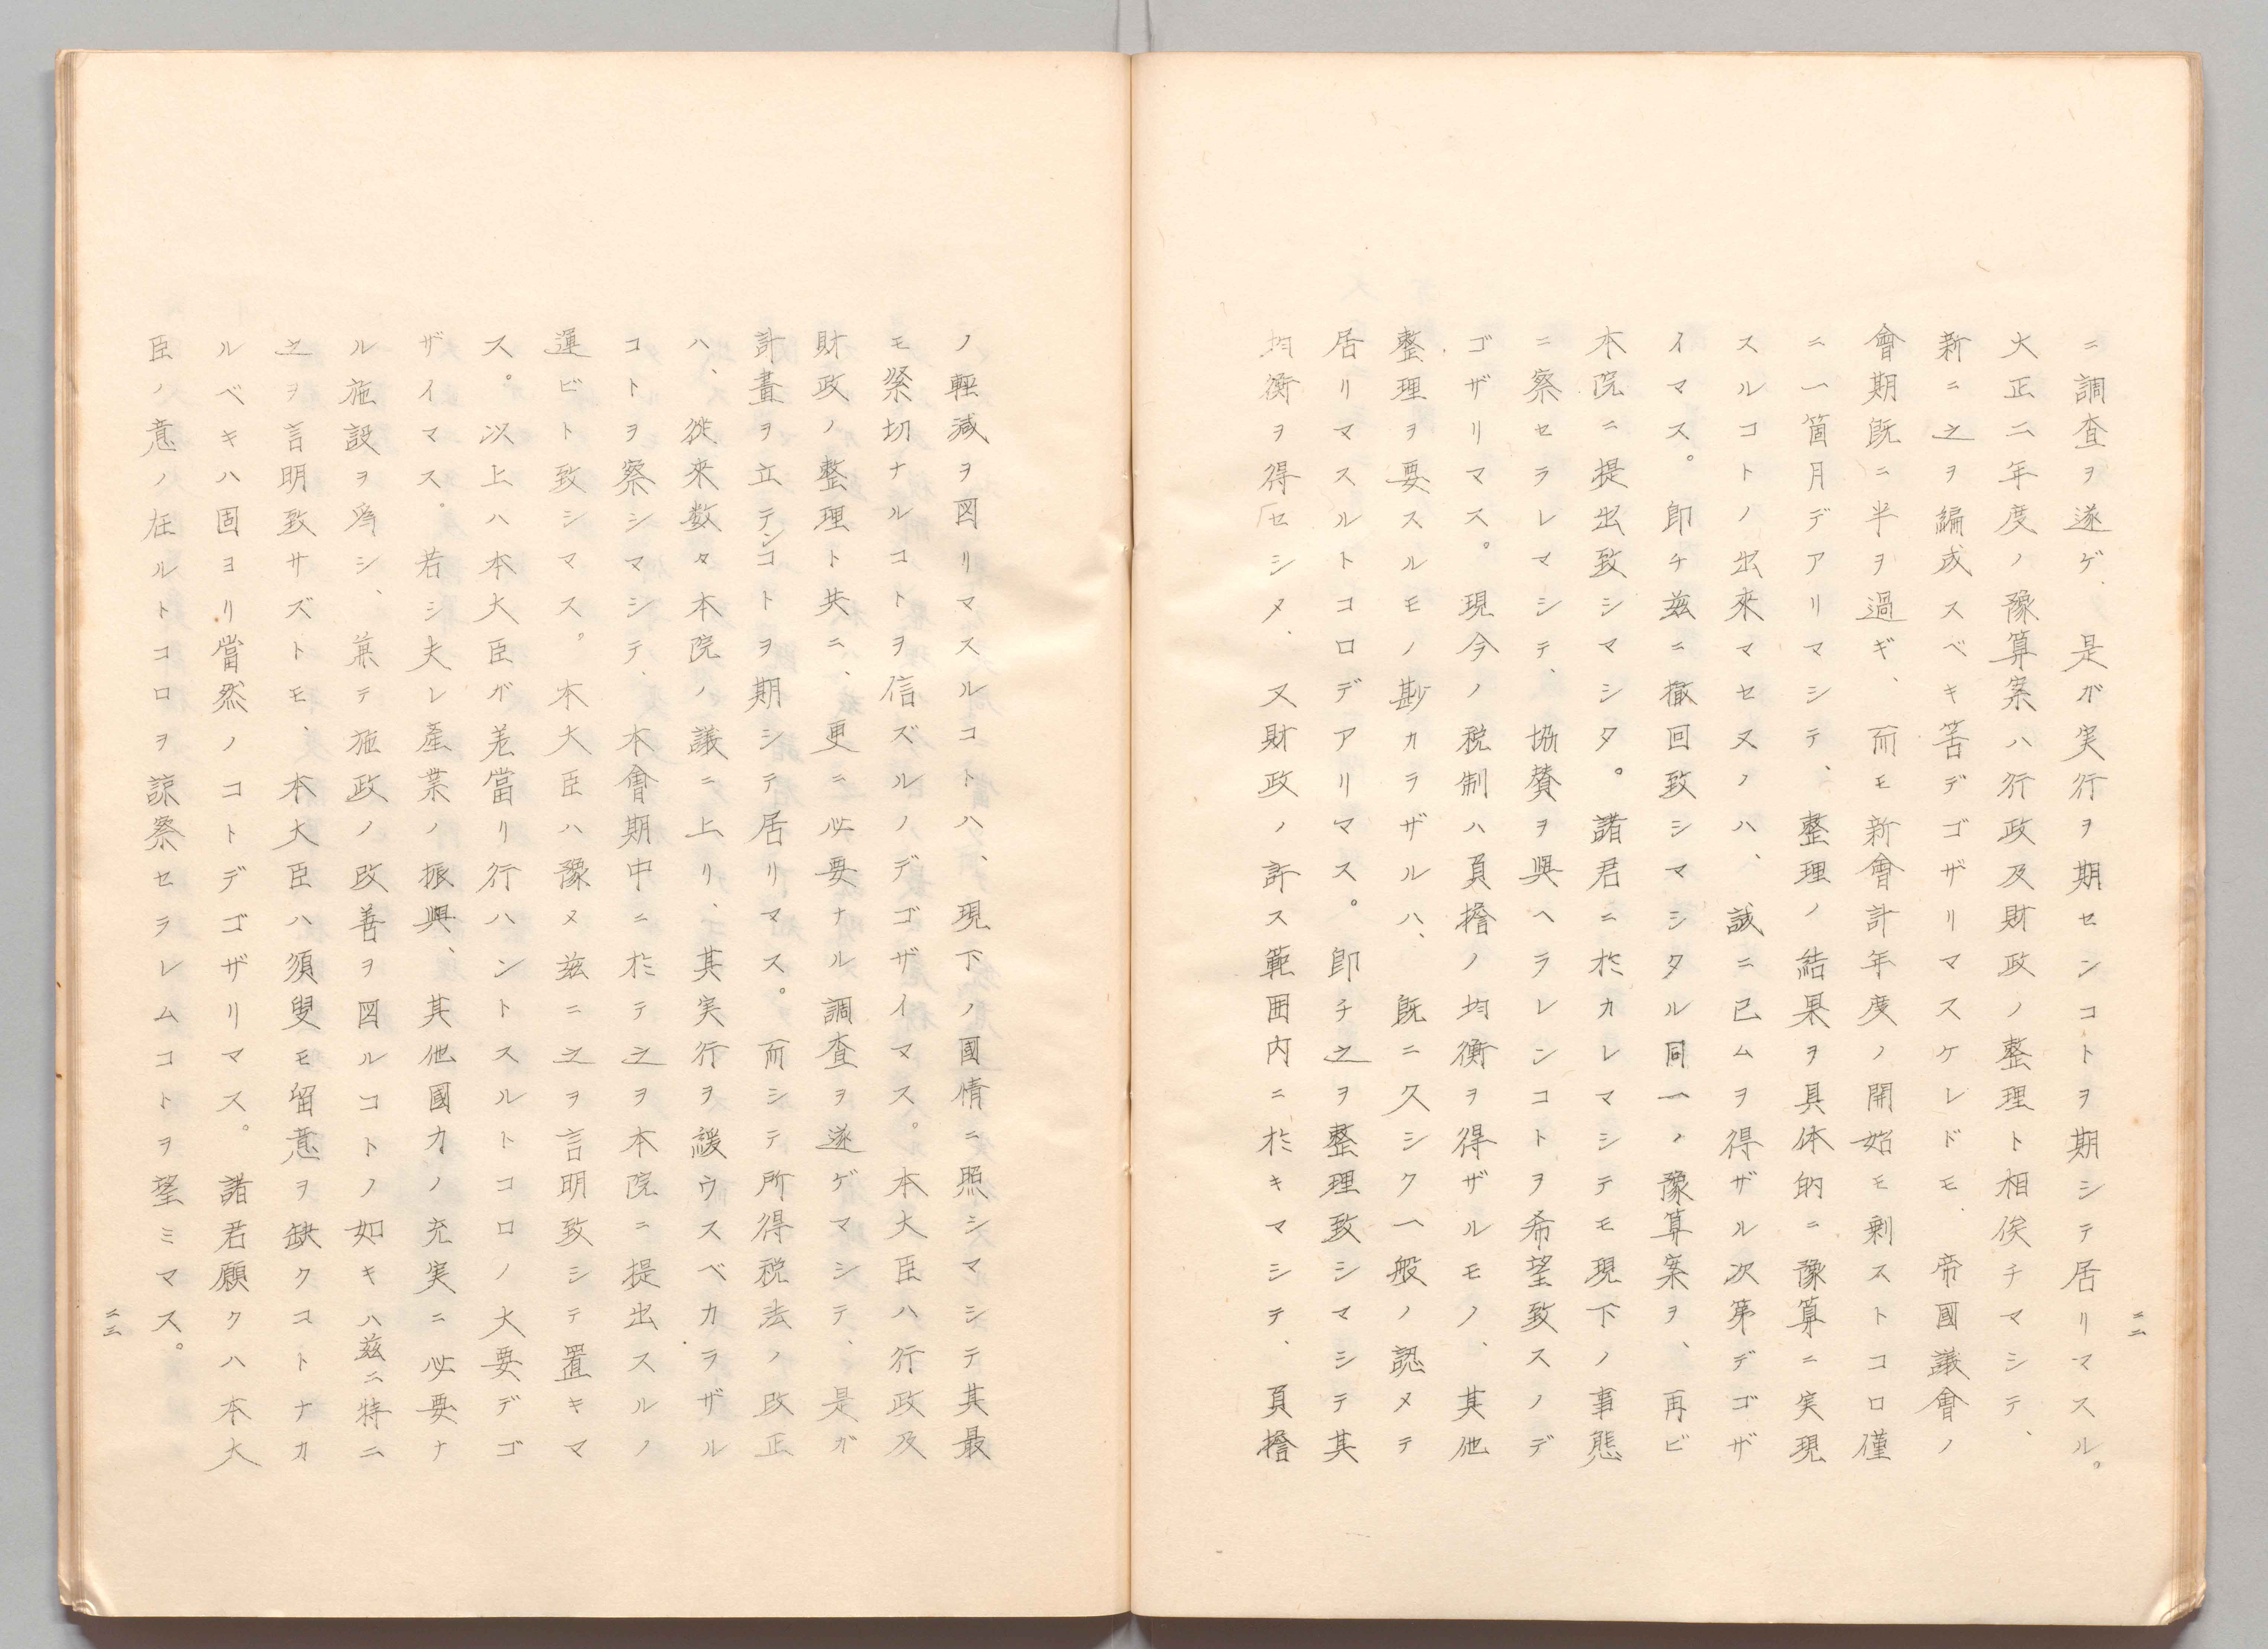 ニ調査ヲ遂ゲ、是ガ実行ヲ期センコトヲ期シテ居リマスル。
大正二年度ノ豫算案ハ行政及財政ノ整理ト相俟チマシテ、
新ニ之ヲ編成スベキ筈デゴザリマスケレドモ、帝國議會ノ
會期既ニ半ヲ過ギ、而モ新會計年度ノ開始モ剰ストコロ僅
ニ一箇月デアリマシテ、整理ノ結果ヲ具体的ニ豫算ニ実現
スルコトノ出來マセヌノハ、誠ニ已ムヲ得ザル次第デゴザ
イマス。即チ茲ニ撤回致シマシタル同一ノ豫算案ヲ、再ビ
本院ニ提出致シマシタ。諸君ニ於カレマシテモ現下ノ事態
ニ察セラレマシテ、協賛ヲ與ヘラレンコトヲ希望致スノデ
ゴザリマス。現今ノ税制ハ負擔ノ均衡ヲ得ザルモノ、其他
整理ヲ要スルモノ尠カラザルハ、既ニ久シク一般ノ認メテ
居リマスルトコロデアリマス。即チ之ヲ整理致シマシテ其
均衡ヲ得セシメ、又財政ノ許ス範囲内ニ於キマシテ、負擔
二二
ノ輕減ヲ図リマスルコトハ、現下ノ國情ニ照シマシテ其最
モ緊切ナルコトヲ信ズルノデゴザイマス。本大臣ハ行政及
財政ノ整理ト共ニ、更ニ必要ナル調査ヲ遂ゲマシテ、是ガ
計畫ヲ立テンコトヲ期シテ居リマス。而シテ所得税法ノ改正
ハ、従來数々本院ノ議ニ上リ、其実行ヲ緩ウスベカラザル
コトヲ察シマシテ、本會期中ニ於テ之ヲ本院ニ提出スルノ
運ビト致シマス。本大臣ハ豫メ茲ニ之ヲ言明致シテ置キマ
ス。以上ハ本大臣ガ差當リ行ハントスルトコロノ大要デゴ
ザイマス。若シ夫レ產業ノ振興、其他國力ノ充実ニ必要ナ
ル施設ヲ為シ、兼テ施政ノ改善ヲ図ルコトノ如キハ茲ニ特ニ
之ヲ言明致サズトモ、本大臣ハ須臾モ留意ヲ缺クコトナカ
ルベキハ固ヨリ當然ノコトデゴザリマス。諸君願クハ本大
臣ノ意ノ在ルトコロヲ諒察セラレムコトヲ望ミマス。
二三